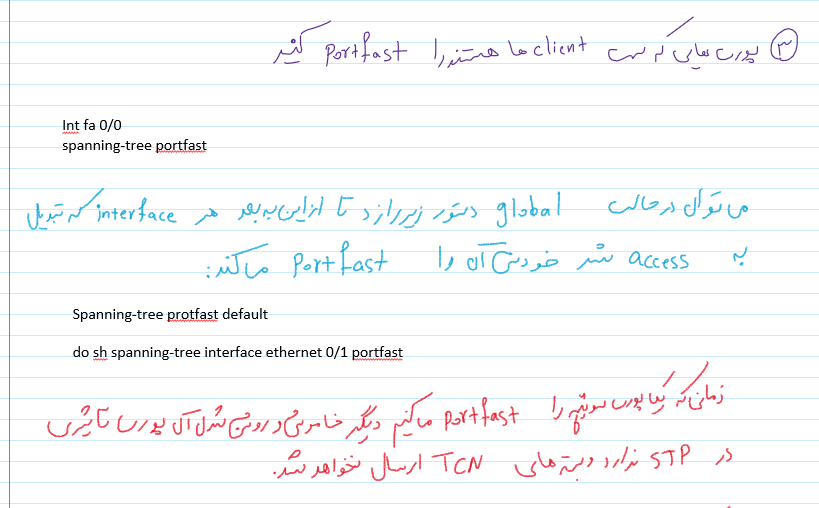 ③ پورت هایی که سمت client ها هستند را Portfast کنید
Int fa 0/0
spanning-tree portfast
می توان در حالت global دستور زیر را زد تا از این به بعد هر interface که تبدیل
به access شد خودش آن را Portfast می کند:
Spanning-tree protfast default
do sh spanning-tree interface ethernet 0/1 portfast
زمانی که یک پورت سوئیچ را Portfast می کنیم دیگر خاموش و روشن شدن آن پورت تاثیری
در STP ندارد و بسته های TCN ارسال نخواهد شد.